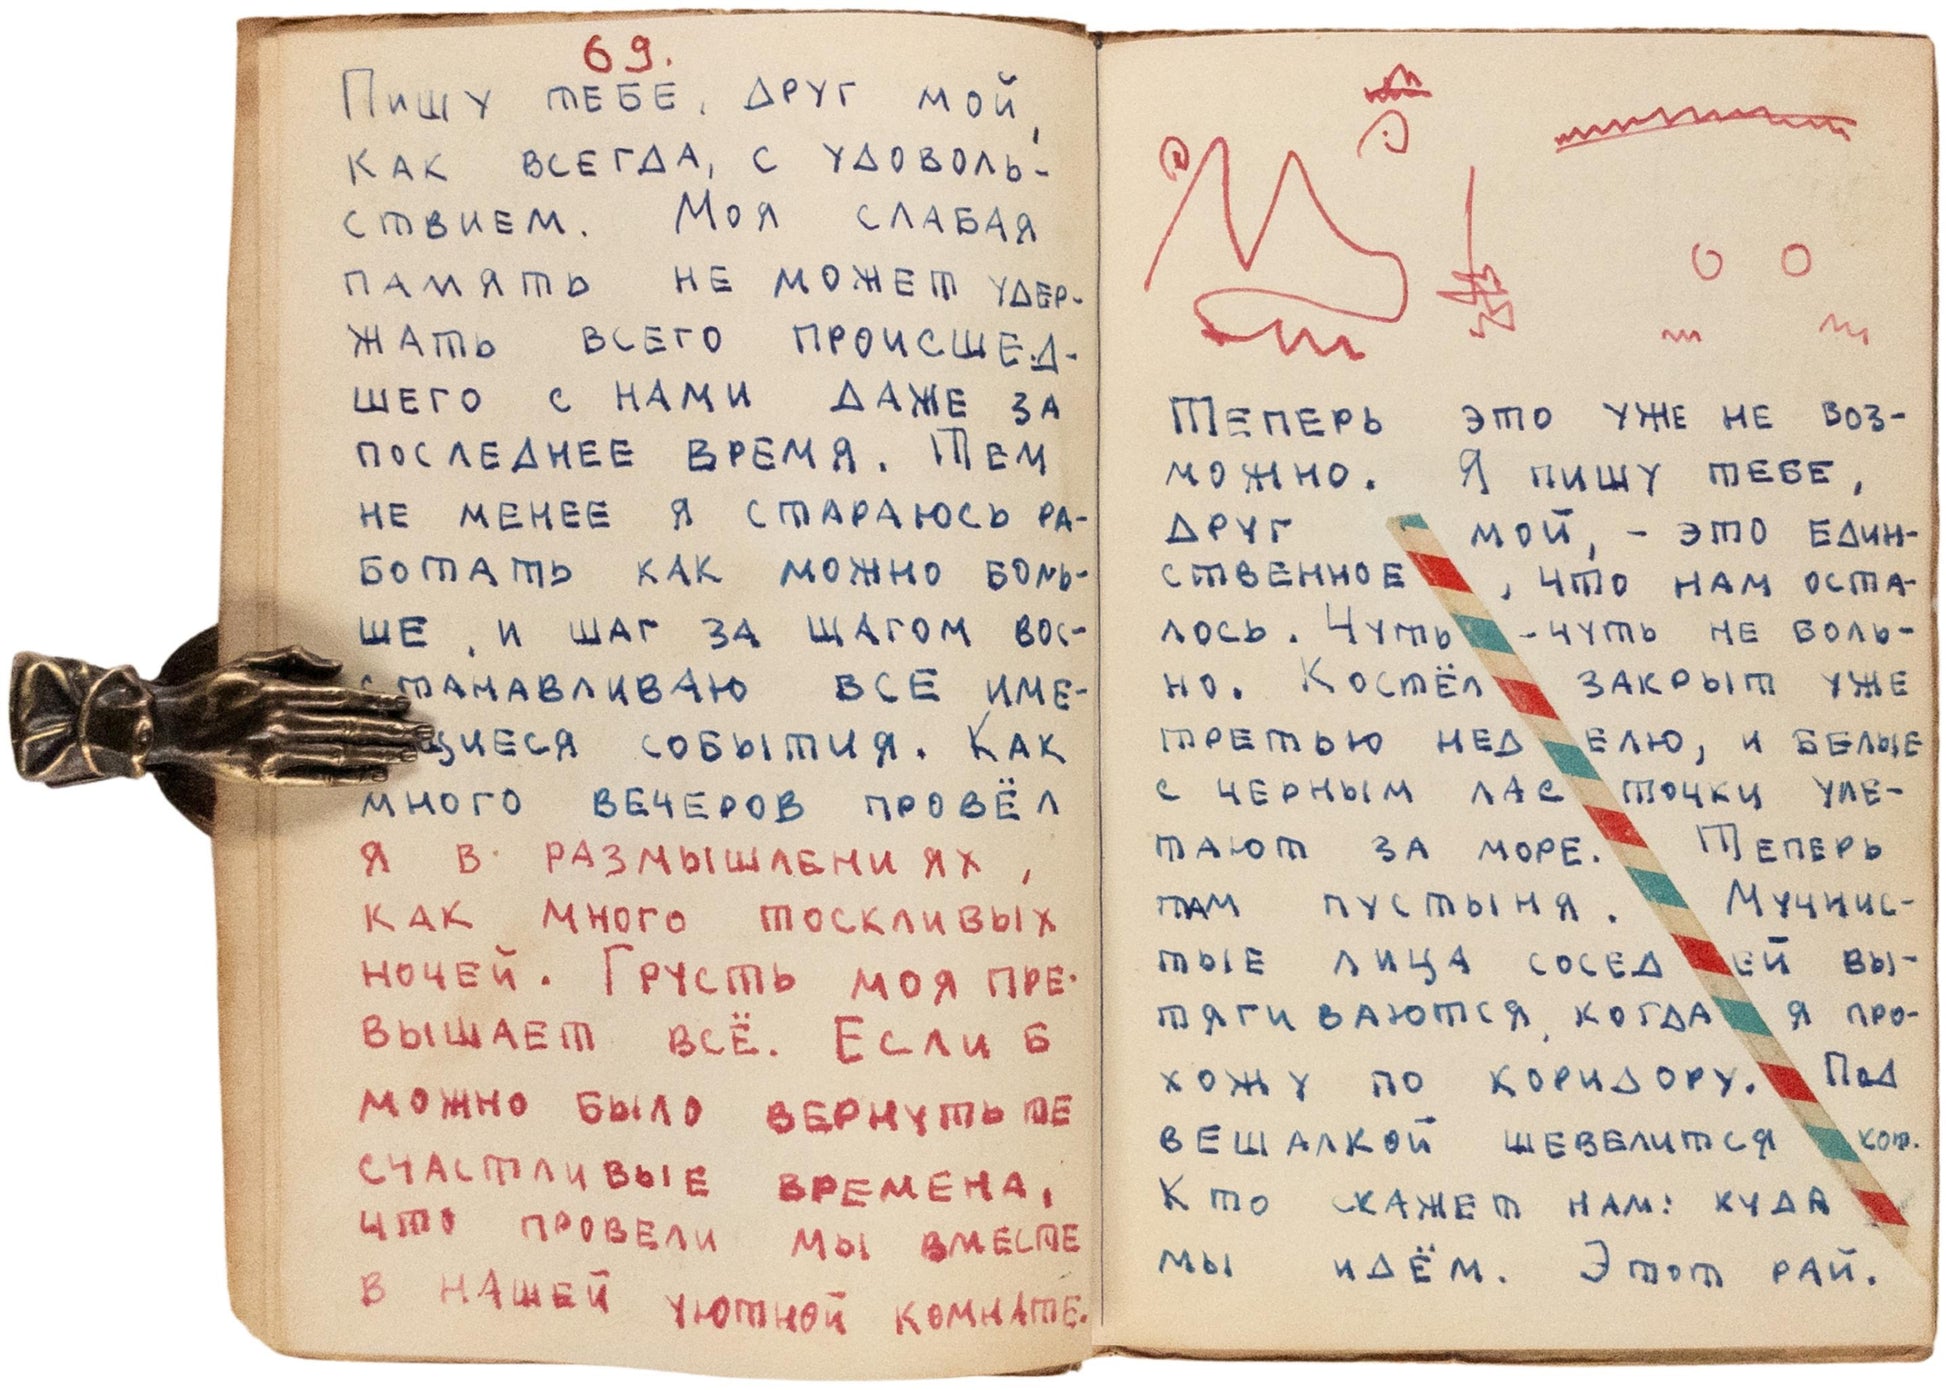 69.
Пишу тебе, друг мой,
как всегда, с удоволь-
ствием. Моя слабая
память не может удер-
жать всего происшед-
шего с нами даже за
последнее время. Тем
не менее я стараюсь ра-
ботать как можно боль-
ше, и шаг за шагом вос-
станавливаю все име-
ющиеся события. Как
много вечеров провёл
я в размышлениях,
как много тоскливых
ночей. Грусть моя пре-
вышает всё. Если б
можно было вернуть те
счастливые времена,
что провели мы вместе
в нашей уютной комнате.
Теперь это уже не воз-
можно. Я пишу тебе,
друг мой, - это един-
ственное, что нам оста-
лось. Чуть-чуть не боль-
но. Костёл закрыт уже
третью неделю, и белые
с черным ласточки уле-
тают за море. Теперь
там пустыня. Мучнис-
тые лица соседей вы-
тягиваются, когда я про-
хожу по коридору. Под
вешалкой шевелится кот.
Кто скажет нам: куда
мы идём. Этот рай.